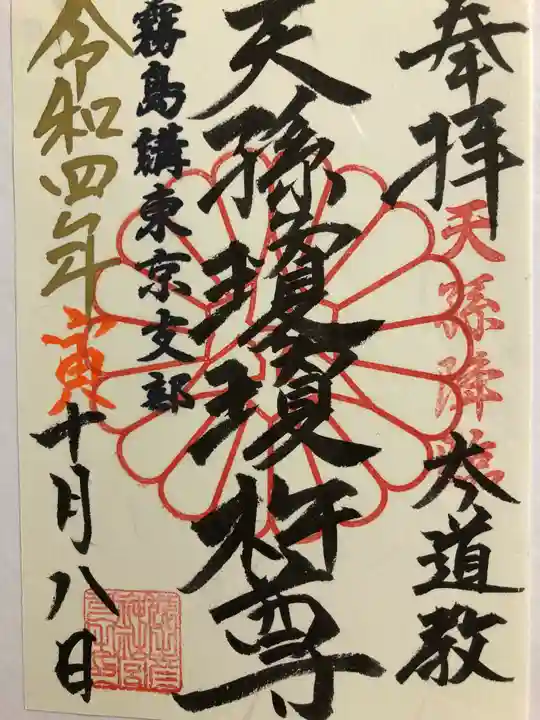 奉拝
天孫降臨
大道教
天孫瓊瓊杵尊
霧島講東京支部
令和四年
寅
十月八日